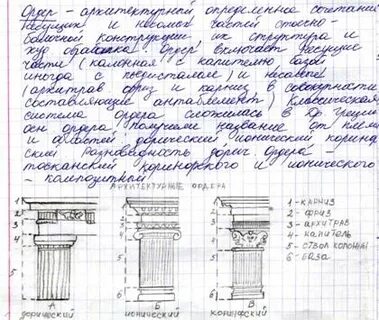 Ордер - архитектурный определенное сочетание
несущих и несомых частей стоечно-
балочной конструкции их структура и
худ обработка ордер включает несущие
части (колонна с капителью базой
иногда с пьедесталом) и несомые
(архитрав фриз и карниз в совокупности
составляющие антаблемент) Классическая
система ордера сложилась в Др Греции
осн ордера получили название от племён
и областей дорический ионический коринф
ский Разновидность дорич ордера
тосканский Коринфского и ионического
- композитный
АРХИТЕКТУРНЫЕ ОРДЕРА
1 - КАРНИЗ
2 - ФРИЗ
3 - АРХИТРАВ
4 - КАПИТЕЛЬ
5 - СТВОЛ КОЛОННЫ
6 - БАЗА
1
2
3
4
5
1
2
3
4
5
6
1
2
3
4
5
6
А Б В
дорический ионический коринфский